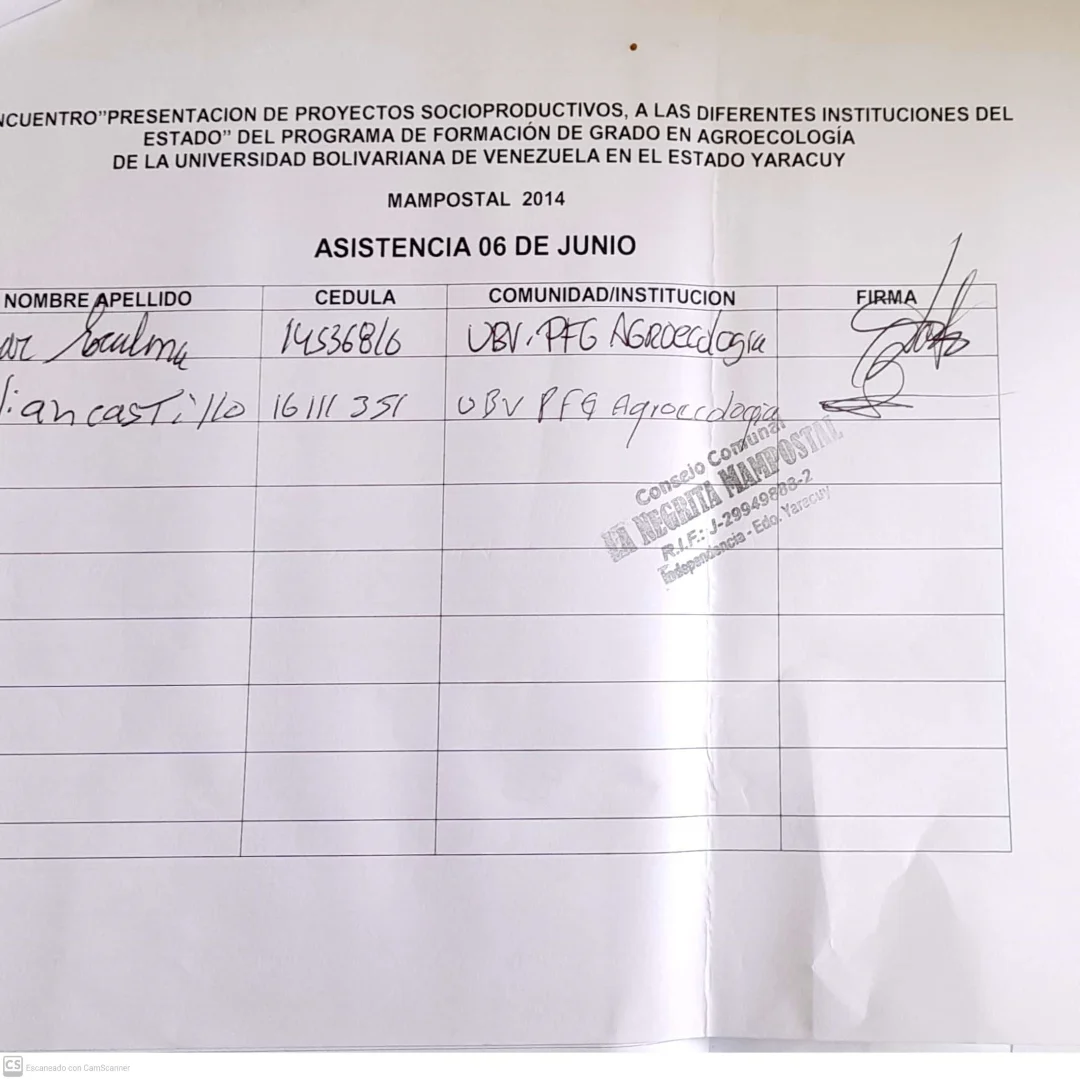 NCUENTRO"PRESENTACION DE PROYECTOS SOCIOPRODUCTIVOS, A LAS DIFERENTES INSTITUCIONES DEL
ESTADO" DEL PROGRAMA DE FORMACIÓN DE GRADO EN AGROECOLOGÍA
DE LA UNIVERSIDAD BOLIVARIANA DE VENEZUELA EN EL ESTADO YARACUY
MAMPOSTAL 2014
ASISTENCIA 06 DE JUNIO
NOMBRE APELLIDO CEDULA COMUNIDAD/INSTITUCION FIRMA
UBV. PFG AGROecologia
iancastillo 16111351 UBV PFG Agroecologia
Consejo Comunal
LA NEGRITA MAMPOSTAL
R.I.F.: J-29949808-2
Independencia - Edo. Yaracuy
CS Escaneado con CamScanner